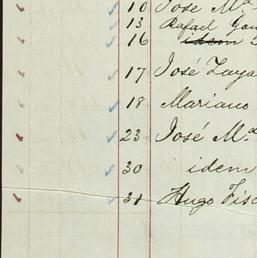 10 José Mª
13 Rafael
16 idem
17 José
18 Mariano
23 José Mª
30 idem
31 Hugo